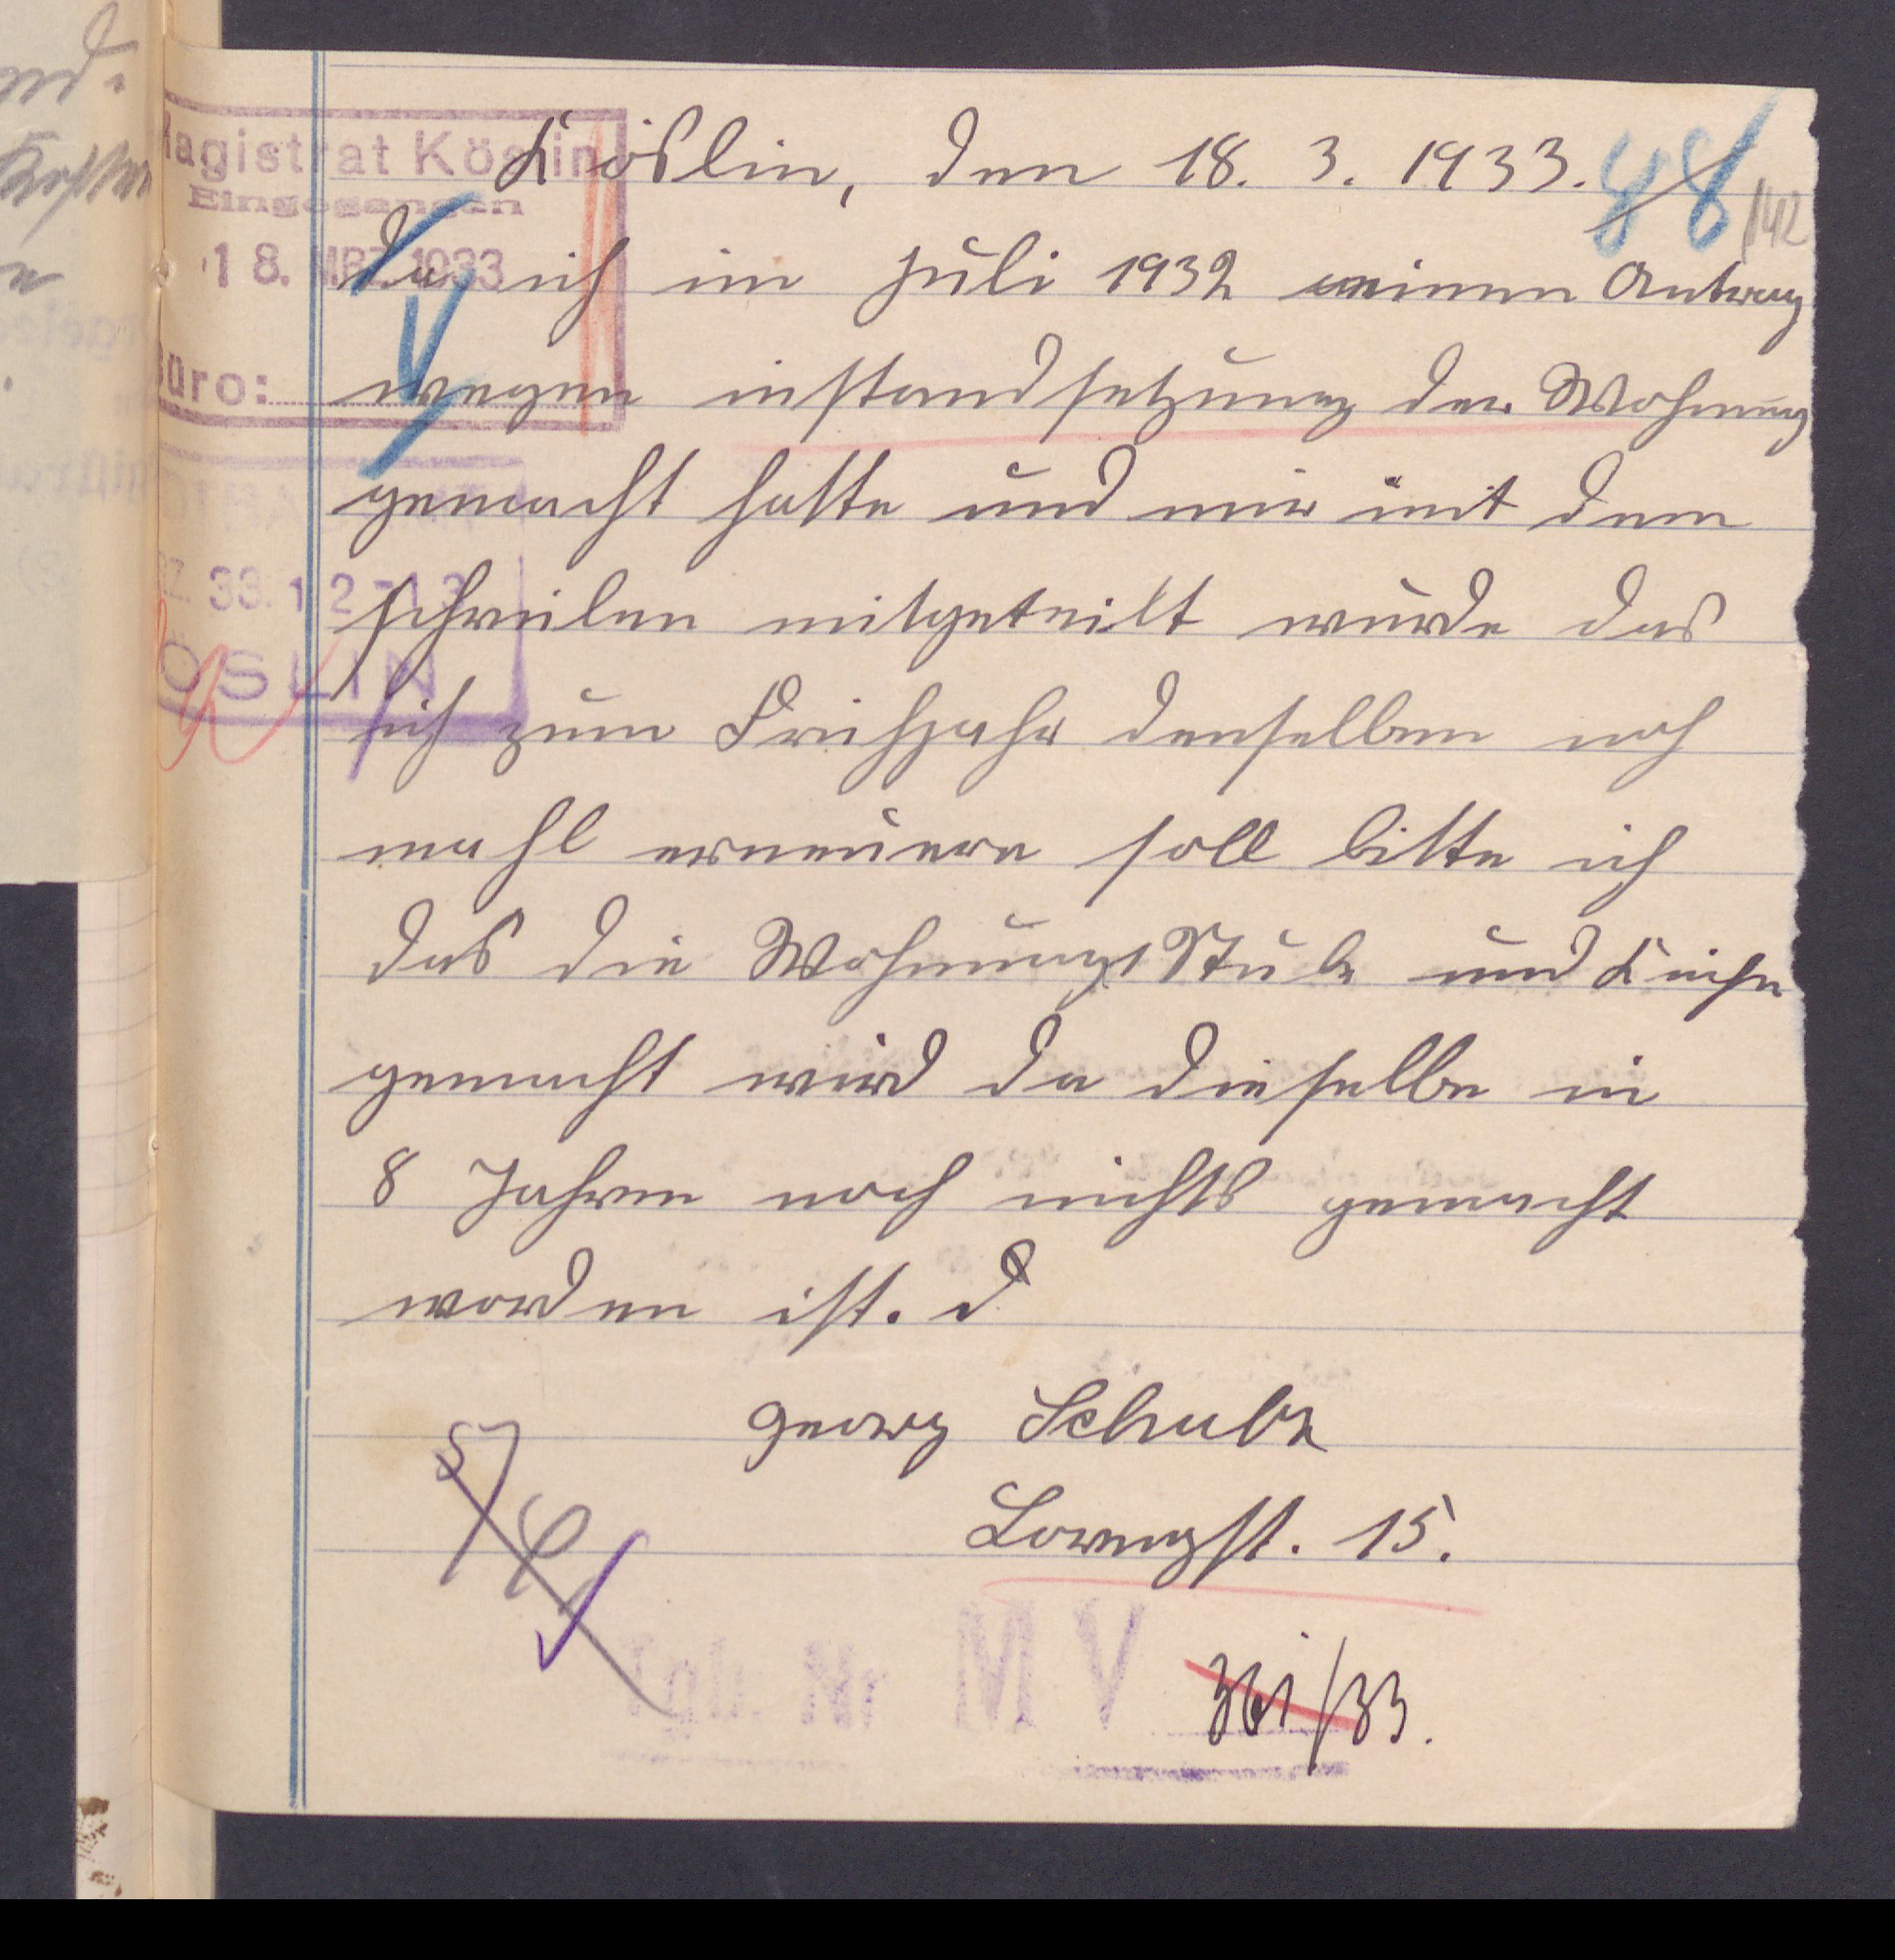 Magistrat Köslin
Eingegangen
18. MRZ. 1933
Büro:
RZ. 33. 12-13
KÖSLIN
Köslin, den 18. 3. 1933.
88
142
Da ich im Juli 1932 meinen Antrag
wegen instandsetzung der Wohnung
gemacht hatte und mir mit dem
schreiben mitgeteilt wurde das
ich zum Frühjahr denselben noch
mahl erneuere soll bitte ich
das die Wohnung Stube und Küche
gemacht wird da dieselbe in
8 Jahren noch nichts gemacht
worden ist. d
Georg Schulz
Lorenzst. 15.
Tgb. Nr. M V 361/33.